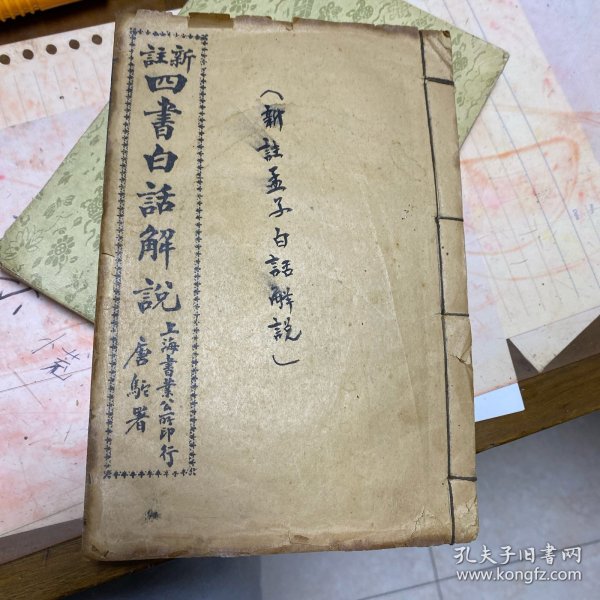 新註
四書白話解說
上海書業公所印行
唐駝署
（新註孟子白話解説）
孔夫子旧书网
www.kongfz.com